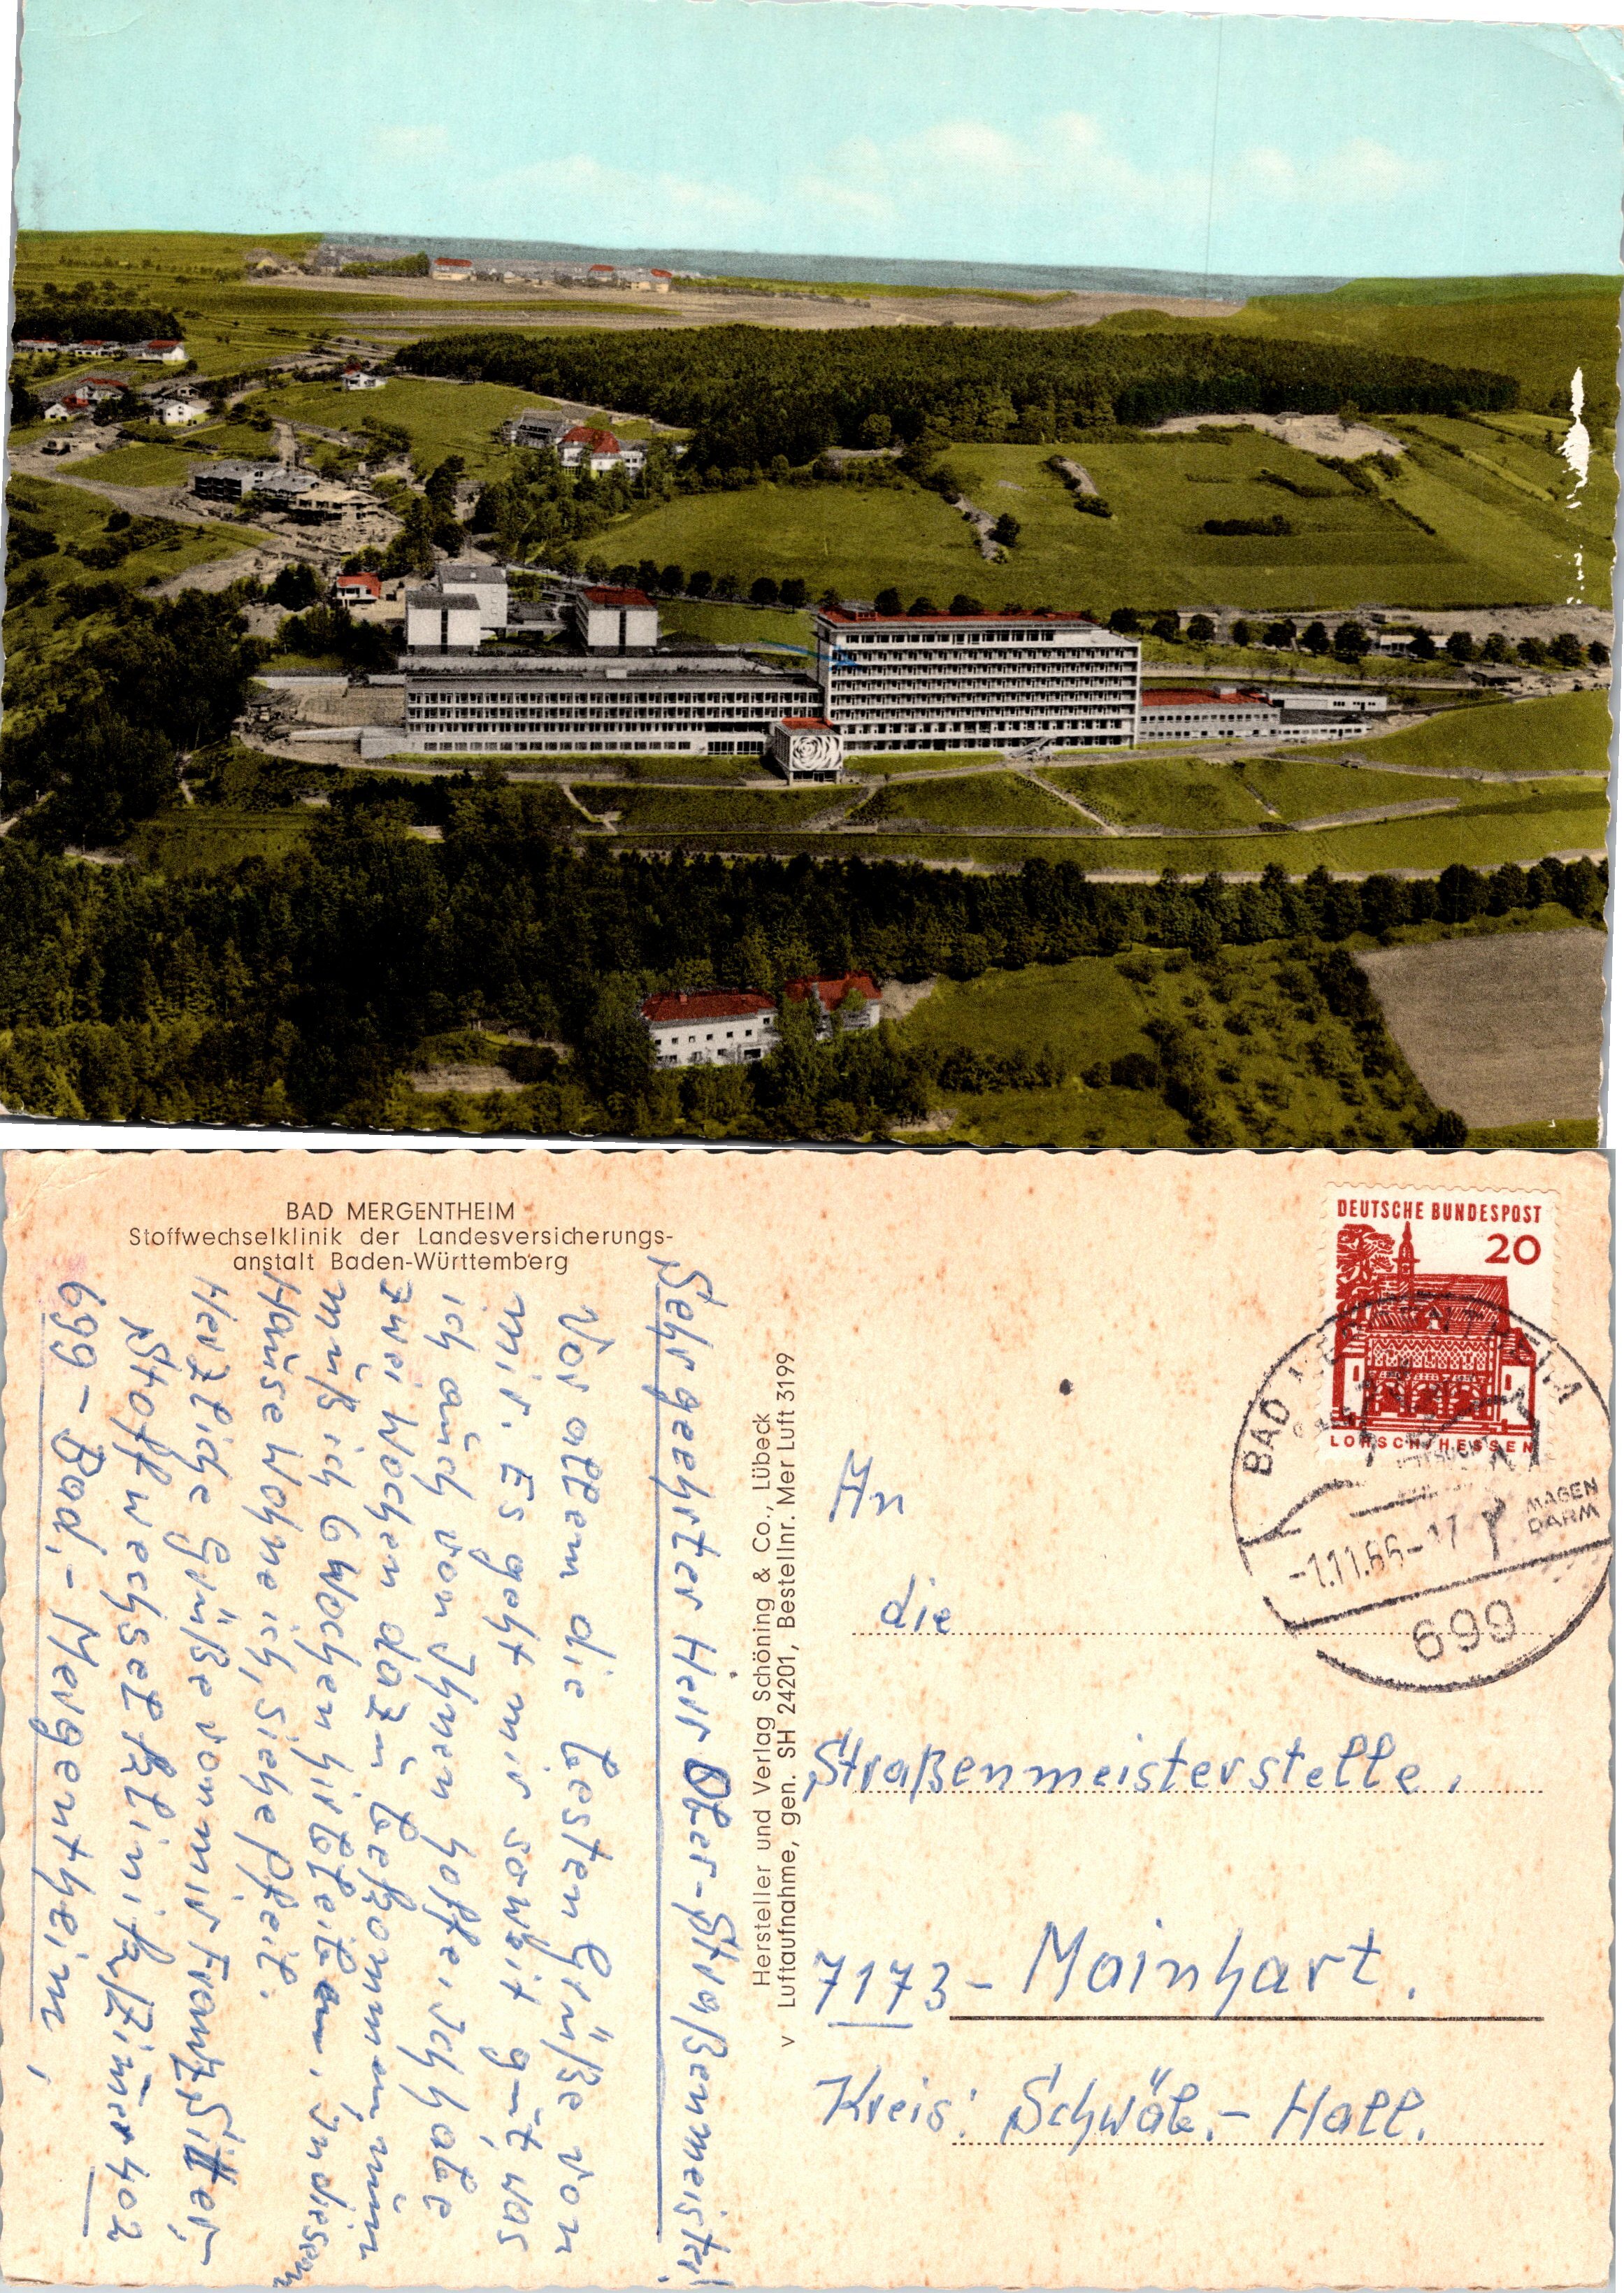 BAD MERGENTHEIM
Stoffwechselklinik der Landesversicherungs-
anstalt Baden-Württemberg
Sehr geehrter Herr Ober-Straßenmeister!
Vor allem die besten Grüße von
mir. Es geht mir soweit gut, was
ich auch von Ihnen hoffe, ich habe
zwei Wochen dazu bekommen, nun
muß ich 6 Wochen hirbleiben. In diesem
Hause wohne ich, siehe Pfeil.
Herzliche Grüße von mir Franz
Stoffwechselklinik/Zimmer 402
699 - Bad,- Mergentheim,
Hersteller und Verlag Schöning & Co., Lübeck
v Luftaufnahme, gen. SH 24201, Bestellnr. Mer Luft 3199
DEUTSCHE BUNDESPOST
20
LORSCH/HESSEN
BAD MERGENTHEIM
MAGEN
DARM
-1.11.66-17
699
An
die
Straßenmeisterstelle.
7173 - Mainhart.
Kreis: Schwäb.- Hall.